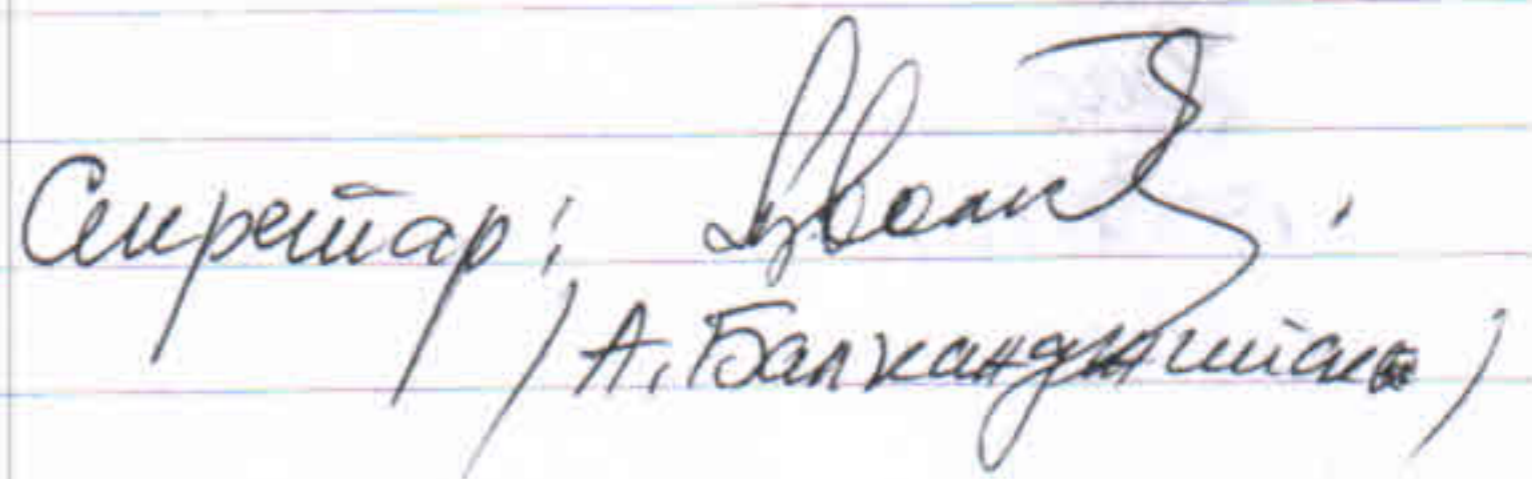 Секретар:
/ А. Балканджийска /